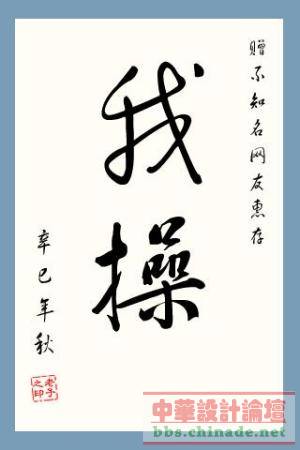 赠不知名网友惠存
我操
辛巳年秋
老子之印
中華設計論壇
bbs.chinade.net